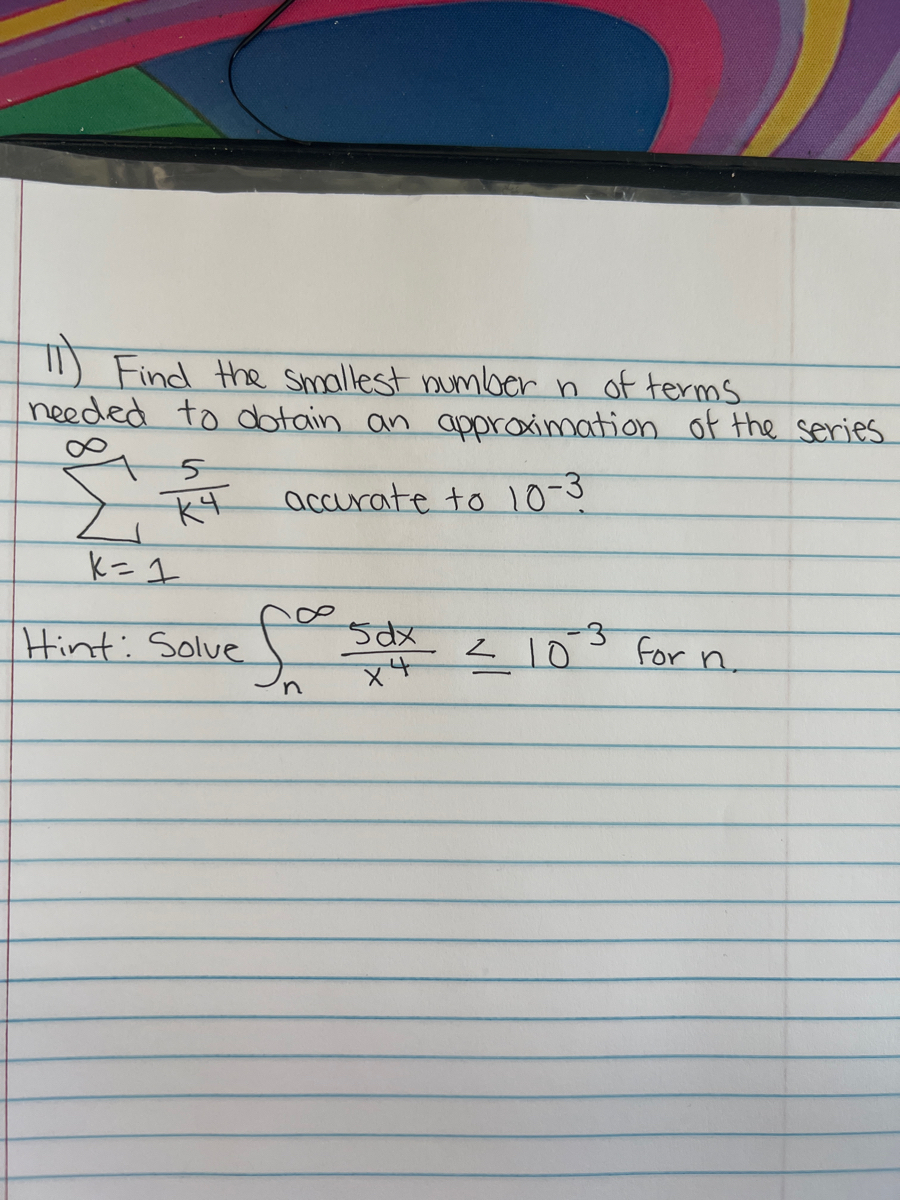 11) Find the smallest number n of terms
needed to obtain an approximation of the series
∞
∑ 5/k⁴ accurate to 10⁻³?
k=1
Hint: Solve ∫ₙ^∞ 5dx/x⁴ ≤ 10⁻³ for n.